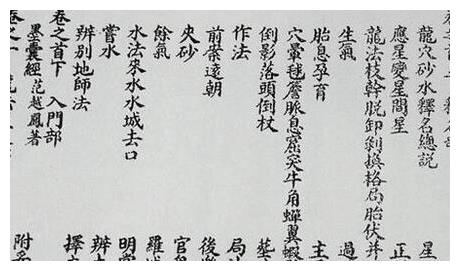 龍穴砂水釋名總説 星
應星變星間星 正
龍法枝幹脱卸剝換格局胎伏并
生氣 過
胎息孕育 主
穴暈毬簷脈息窟突牛角蟬翼蝦
倒影落頭倒杖
作法 局
前案遠朝 後
夾砂 官
餘氣 羅
水法來水水城去口 明
嘗水 辨
辨別地師法 擇
卷之首下 入門部
墨囊經 范越鳳著
附